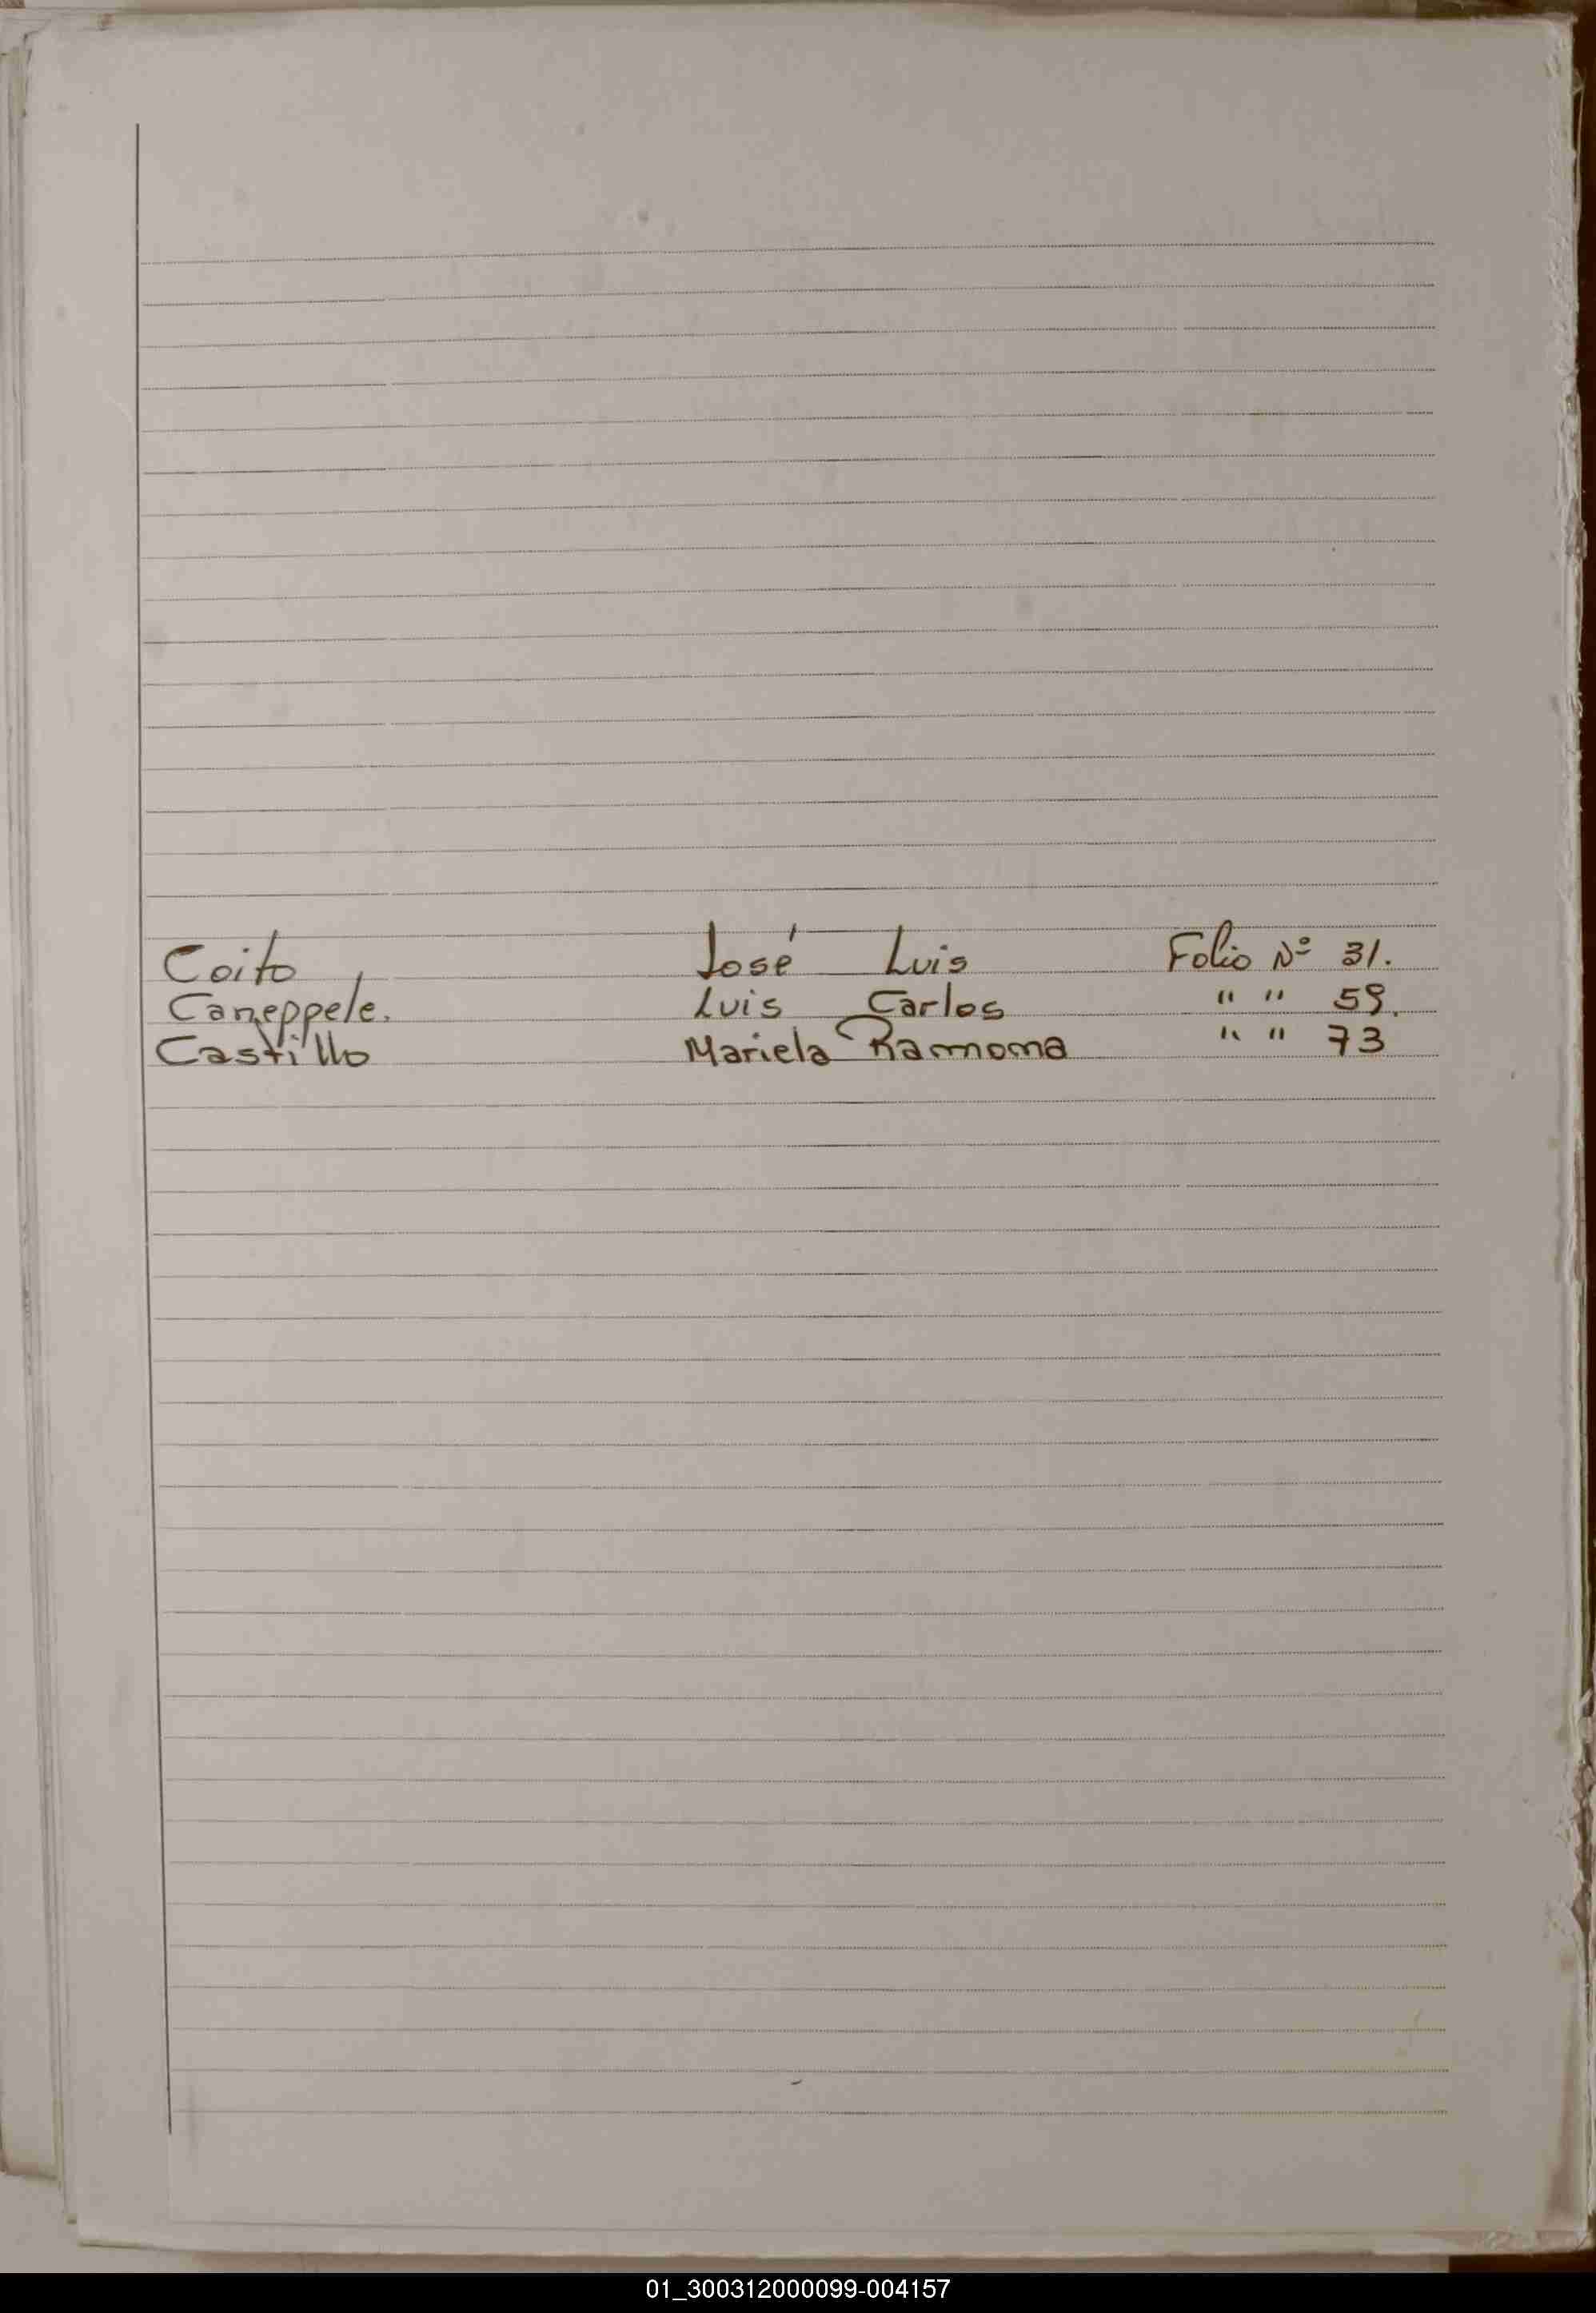 Coito José Luis Folio Nº 31.
Caneppele. Luis Carlos " " 59.
Castillo Mariela Ramona " " 73
01_300312000099-004157